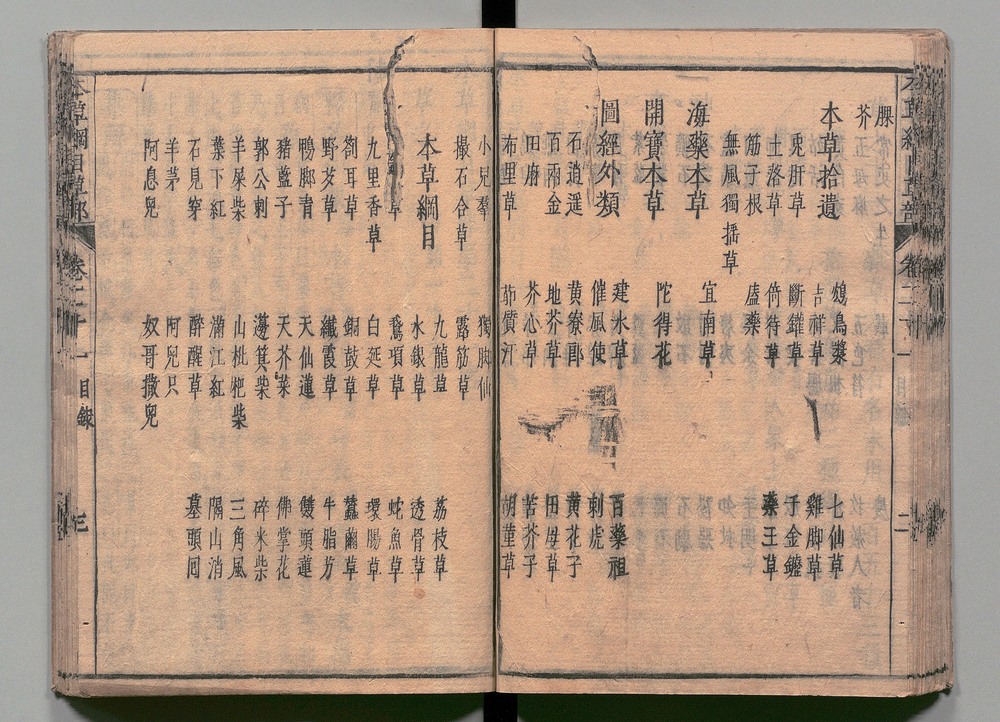 本草綱目草部 卷二十一 目錄 二
本草拾遺 鴆鳥漿 七仙草
吉祥草 雞脚草
兎肝草 斷鑵草 千金鑵
土落草 倚待草 藥王草
筋子根 廅藥
無風獨揺草
海藥本草 宜南草
開寶本草 陀得花
圖經外類 建水草 百藥祖
催風使 刺虎
石逍遥 黄寮郎 黄花子
百兩金 地芥草 田母草
田麻 芥心草 苦芥子
布里草 茆質汗 胡堇草
小兒羣 獨脚仙
撮石合草 露筋草
九龍草 荔枝草
本草綱目 水銀草 透骨草
草 鵞項草 蛇魚草
九里香草 白延草 環腸草
劄耳草 銅鼓草 蠶繭草
野歹草 纖霞草 牛脂艻
鴨脚青 天仙蓮 雙頭蓮
豬藍子 天芥菜 佛掌花
郭公刺 籩箕柴 碎米柴
羊屎柴 山枇杷柴 三角風
葉下紅 滿江紅 隔山消
石見穿 醉醒草 墓頭囘
羊茅 阿兒只
阿息兒 奴哥撒兒
本草綱目草部 卷二十一 目錄 三